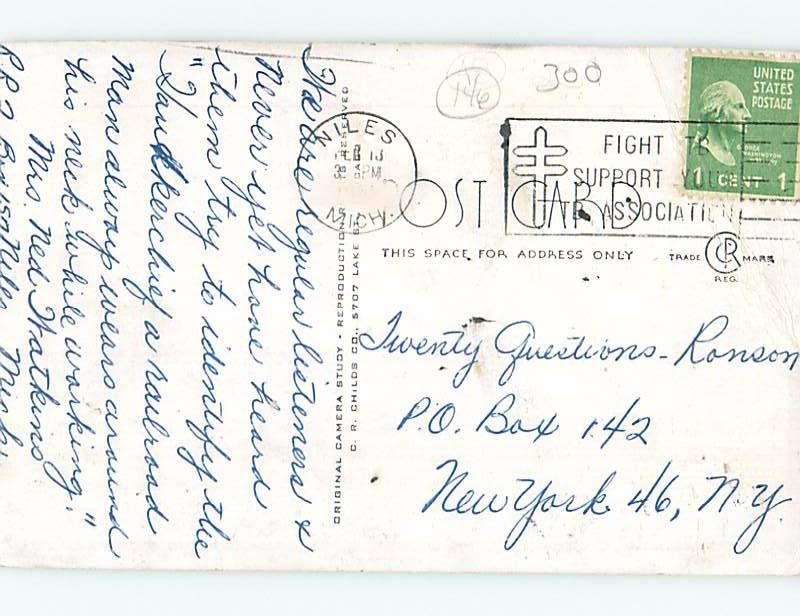 We are regular listeners &
never yet have heard
them try to identify the
"Handkerchief a railroad
man always wears around
his neck while working."
Mrs. Ned Watkins
Niles, Mich.
ORIGINAL CAMERA STUDY - REPRODUCTION
C. R. CHILDS CO., 5707 LAKE
146
300
NILES
FEB 13
PM
MICH
FIGHT TB
SUPPORT YOUR
TB ASSOCIATION
UNITED
STATES
POSTAGE
WASHINGTON
1 CENT 1
POST CARD
THIS SPACE FOR ADDRESS ONLY
TRADE CR MARK
REG.
Twenty Questions - Ronson
P.O. Box 142
New York 46, N.Y.